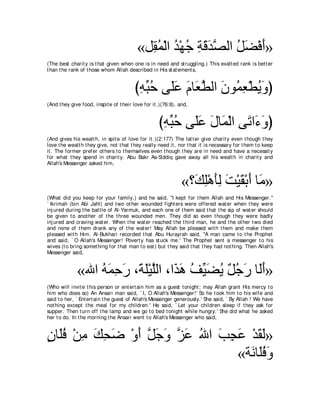 «أَفْضَلُ الصَّدَقَةِ جُهْدُ الْمُقِلِّ»
(The best charity is that given when one is in need and struggling.) This exalted rank is better
than the rank of those whom Allah described in His statements,
(وَيُطْعِمُونَ الطَّعَامَ عَلَى حُبِّهِ)
(And they give food, inspite of their love for it.)(76:8), and,
(وَءَاتَى الْمَالَ عَلَى حُبِّهِ)
(And gives his wealth, in spite of love for it.)(2:177) The latter give charity even though they
love the wealth they give, not that they really need it, nor that it is necessary for them to keep
it. The former prefer others to themselves even though they are in need and have a necessity
for what they spend in charity. Abu Bakr As-Siddiq gave away all his wealth in charity and
Allah's Messenger asked him,
«مَا أَبْقَيْتَ لِأَهْلِكَ؟»
(What did you keep for your family,) and he said, "I kept for them Allah and His Messenger."
`Ikrimah (bin Abi Jahl) and two other wounded fighters were offered water when they were
injured during the battle of Al-Yarmuk, and each one of them said that the sip of water should
be given to another of the three wounded men. They did so even though they were badly
injured and craving water. When the water reached the third man, he and the other two died
and none of them drank any of the water! May Allah be pleased with them and make them
pleased with Him. Al-Bukhari recorded that Abu Hurayrah said, "A man came to the Prophet
and said, `O Allah's Messenger! Poverty has stuck me.' The Prophet sent a messenger to his
wives (to bring something for that man to eat) but they said that they had nothing. Then Allah's
Messenger said,
«أَلَا رَجُلٌ يُضَيِّفُ هَذَا، اللَّيْلَةَ، رَحِمَهُ الله»
(Who will invite this person or entertain him as a guest tonight; may Allah grant His mercy to
him who does so) An Ansari man said, `I, O Allah's Messenger!' So he took him to his wife and
said to her, `Entertain the guest of Allah's Messenger generously.' She said, `By Allah! We have
nothing except the meal for my children.' He said, `Let your children sleep if they ask for
supper. Then turn off the lamp and we go to bed tonight while hungry.' She did what he asked
her to do. In the morning the Ansari went to Allah's Messenger who said,
«لَقَدْ عَجِبَ اللهُ عَزَّ وَجَلَّ أَوْ ضَحِكَ مِنْ فُلَانٍ
وَفُلَانَة»